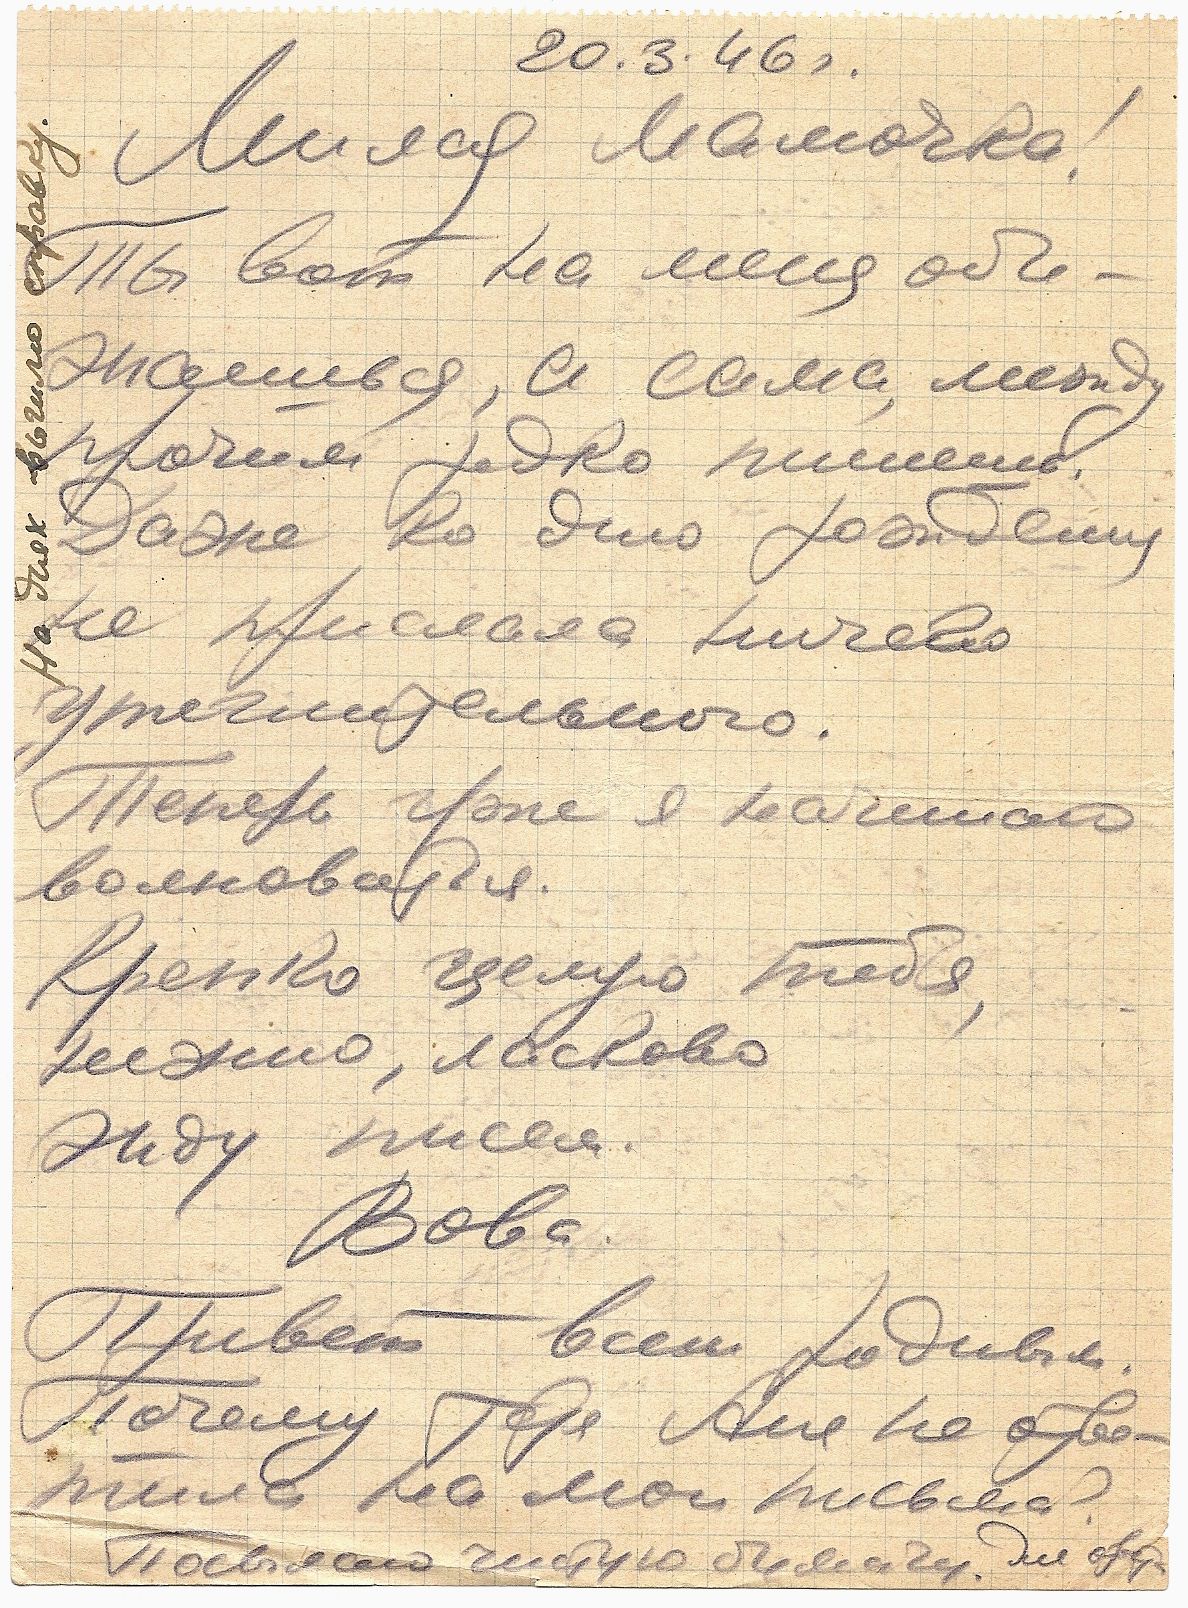 20.3.46 г.
Милая Мамочка!
Ты вот на меня оби-
жаешься, а сама, между
прочим, редко пишешь.
Даже ко дню рождения
не прислала ничего
утешительного.
Теперь уже я начинаю
волноваться.
Крепко целую тебя,
нежно, ласково
жду писем.
Вова.
Привет всем родным.
Почему тётя Аня не отве-
тила на мои письма?
Посылаю чистую бумагу. для ответа
На днях вышлю справку.